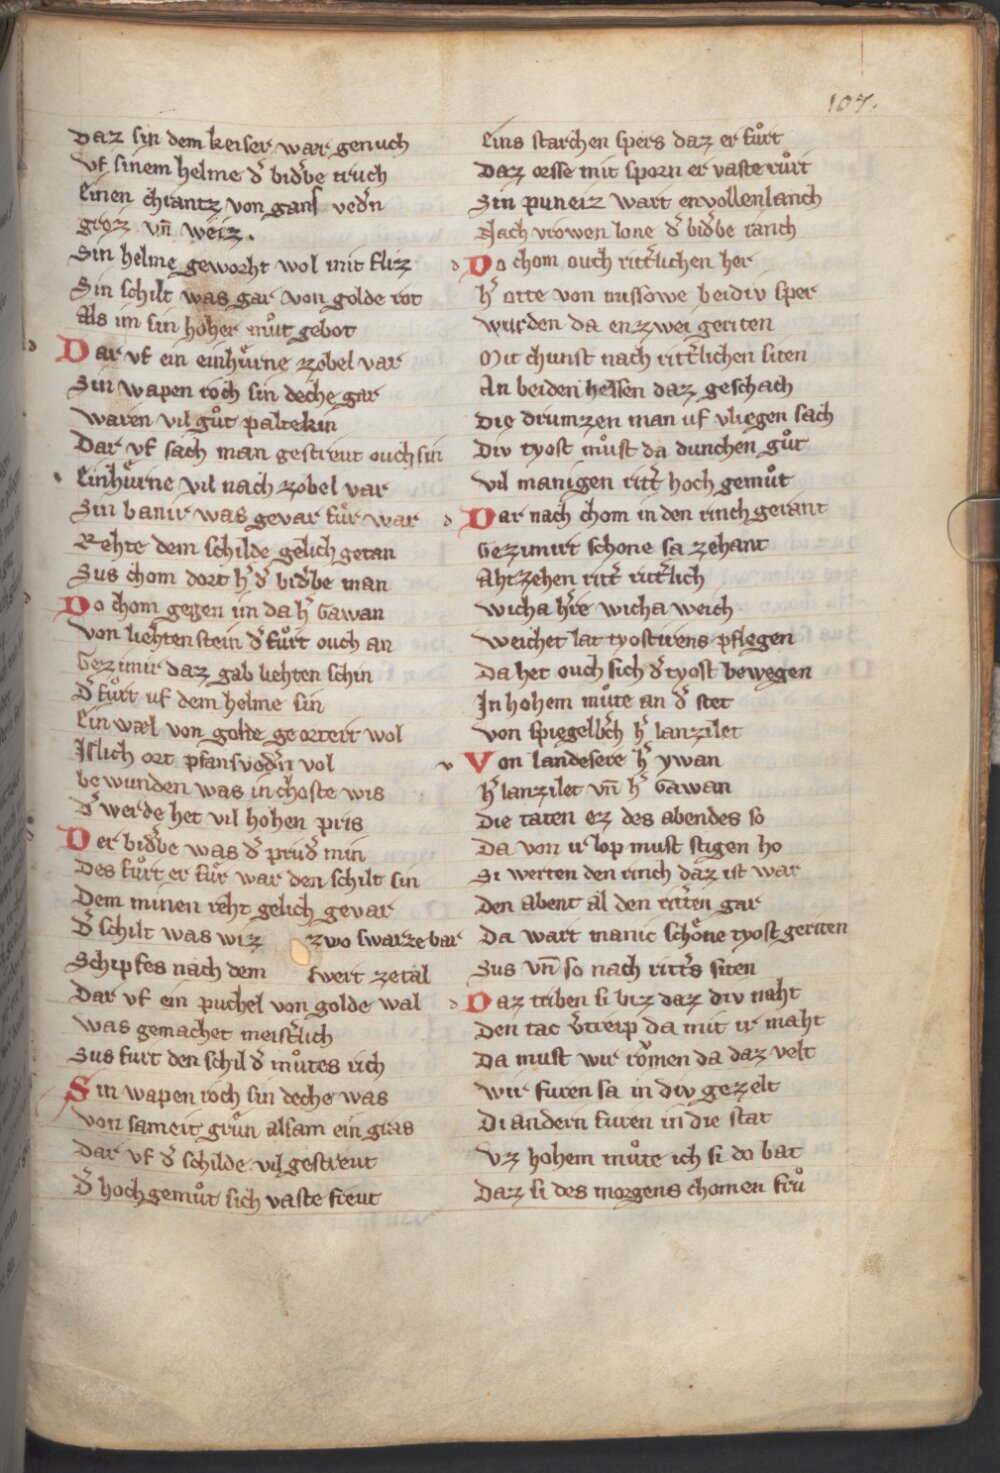 107.
Daz sin dem keiser war genuch
Vf sinem helme d͛ bid͛be truch
Einen chrantz von gans ved͛n
groz vn̄ weiz.
Sin helme geworht wol mit fliz
Sin schilt was gar von golde rot
Als im sin hoher můt gebot
Dar vf ein einhůrne zobel var
Sin wapen roch sin deche gar
waren vil gůt paltekin
Dar vf sach man gestreut ouch sin
Einhůrne vil nach zobel var
Sin banir was gevar fůr war
Rehte dem schilde gelich getan
Sus chom dort h͛ d͛ bid͛be man
Do chom gegen im da h͛ Gawan
von liehtenstein d͛ fůrt ouch an
Gezimir daz gab liehten schin
d͛ fůrt uf dem helme sin
Ein wæl von golte georteirt wol
Islich ort pfansved͛n vol
bewunden was in choste wis
D͛ werde het vil hohen pris
Der bid͛be was d͛ prud͛ min
Des fůrt er fůr war den schilt sin
Dem minen reht gelich gevar
d͛ schilt was wiz zwo swarze bar
Schipfes nach dem swert zetal
Dar vf ein puchel von golde wal
was gemachet meist͛lich
Sus furt den schil d͛ můtes rich
Sin wapen roch sin deche was
von sameit grůn alsam ein gras
Dar vf d͛ schilde vil gestreut
D͛ hochgemůt sich vaste freut
Eins starchen spers daz er fůrt
Daz orsse mit sporn er vaste růrt
Sin puneiz wart envollen lanch
Nach vrowen lone d͛ bid͛be ranch
Do chom ouch ritt͛lichen her
h͛ otte von missowe beidiv sper
wurden da enzwei geriten
Mit chunst nach ritt͛lichen siten
An beiden helsen daz geschach
Die drumzen man uf vliegen sach
Div tyost můst da dunchen gůt
vil manigen ritt͛ hoch gemůt
Dar nach chom in den rinch gerant
Gezimirt schone sa zehant
Ahtzehen ritt͛ ritt͛lich
wicha h͛re wicha weich
weichet lat tyostirens pflegen
Da het ouch sich d͛ tyost bewegen
In hohem můte an d͛ stet
von spiegelb͛ch h͛ lanzilet
Von landesere h͛ ywan
h͛ lanzilet vn̄ h͛ Gawan
Die taten ez des abendes so
Da von ir lop must stigen ho
Si werten den rinch daz ist war
Den abent al den ritt͛en gar
Da wart manic schone tyost geriten
Sus vn̄ so nach ritt͛s siten
Daz triben si biz daz div naht
Den tac v͛treip da mit ir maht
Da must wir romen da daz velt
wir furen sa in div gezelt
Di andern furen in die stat
Vz hohem můte ich si do bat
Daz si des morgens chomen frů